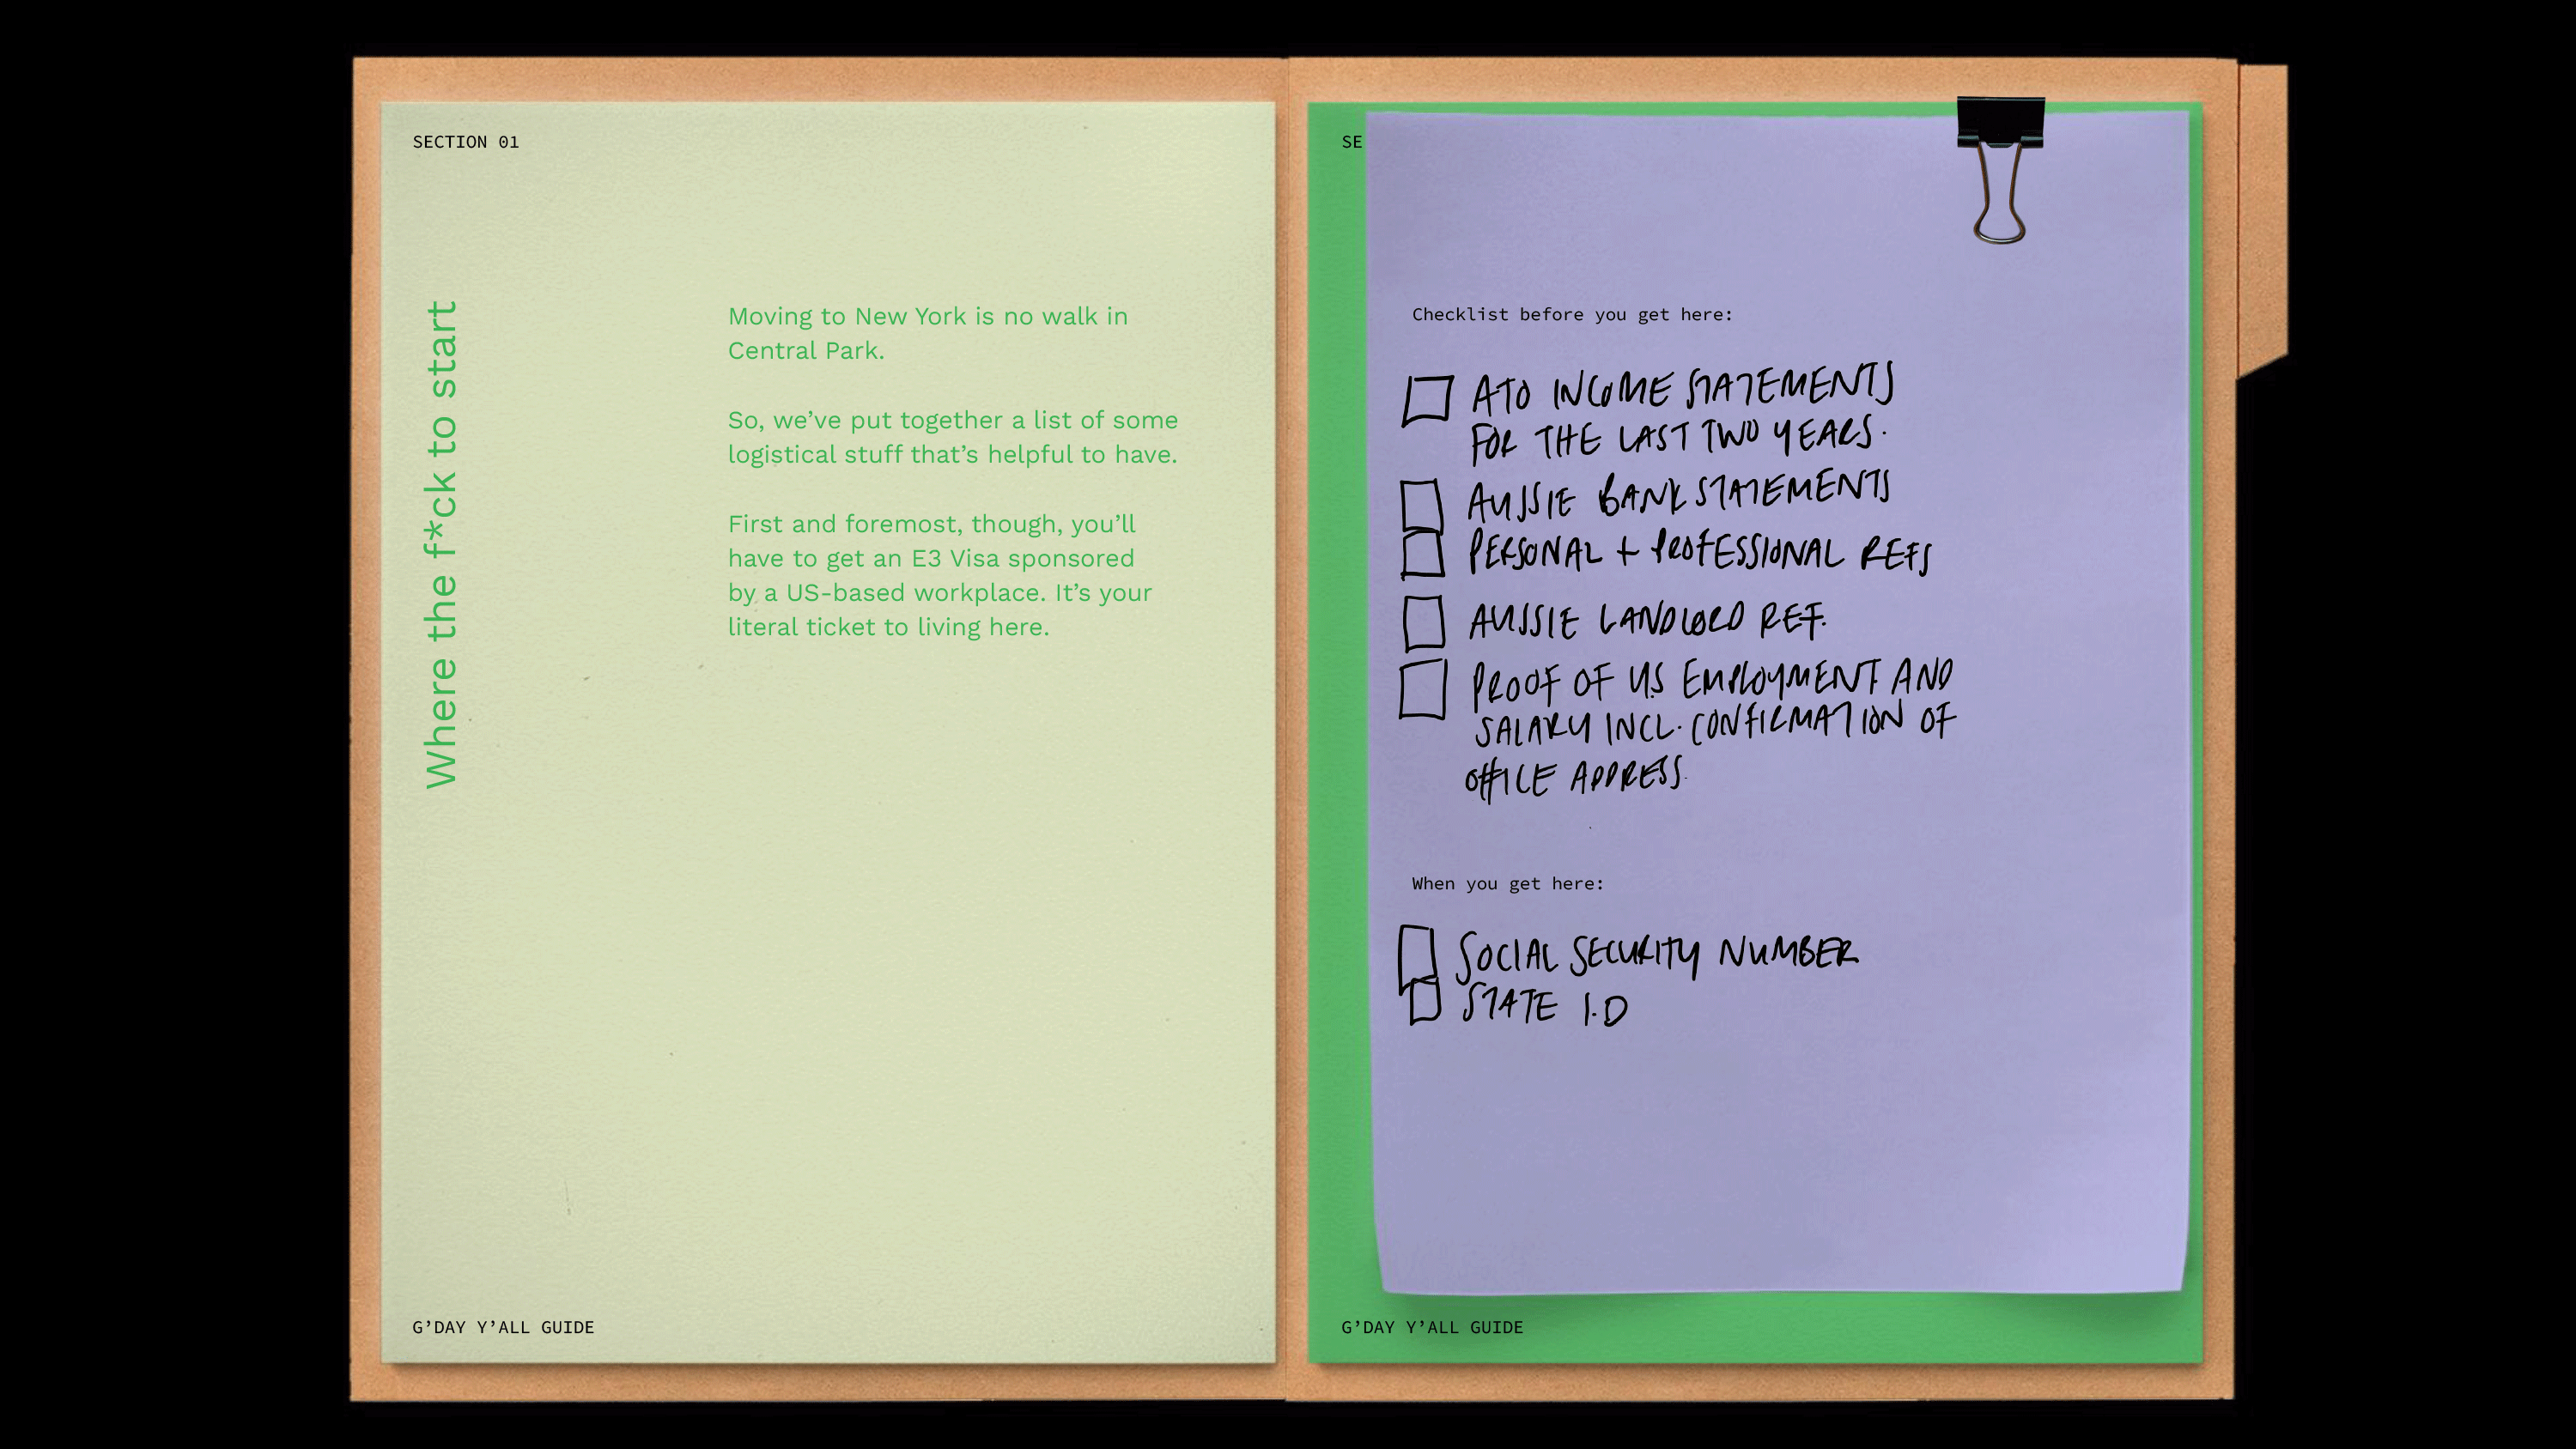 SECTION 01
Where the f*ck to start
Moving to New York is no walk in
Central Park.
So, we’ve put together a list of some
logistical stuff that’s helpful to have.
First and foremost, though, you’ll
have to get an E3 Visa sponsored
by a US-based workplace. It’s your
literal ticket to living here.
G’DAY Y’ALL GUIDE
SE
Checklist before you get here:
ATO INCOME STATEMENTS
FOR THE LAST TWO YEARS.
AUSSIE BANK STATEMENTS
PERSONAL + PROFESSIONAL REFS
AUSSIE LANDLORD REF.
PROOF OF U.S EMPLOYMENT AND
SALARY INCL. CONFIRMATION OF
OFFICE ADDRESS.
When you get here:
SOCIAL SECURITY NUMBER
STATE I.D
G’DAY Y’ALL GUIDE